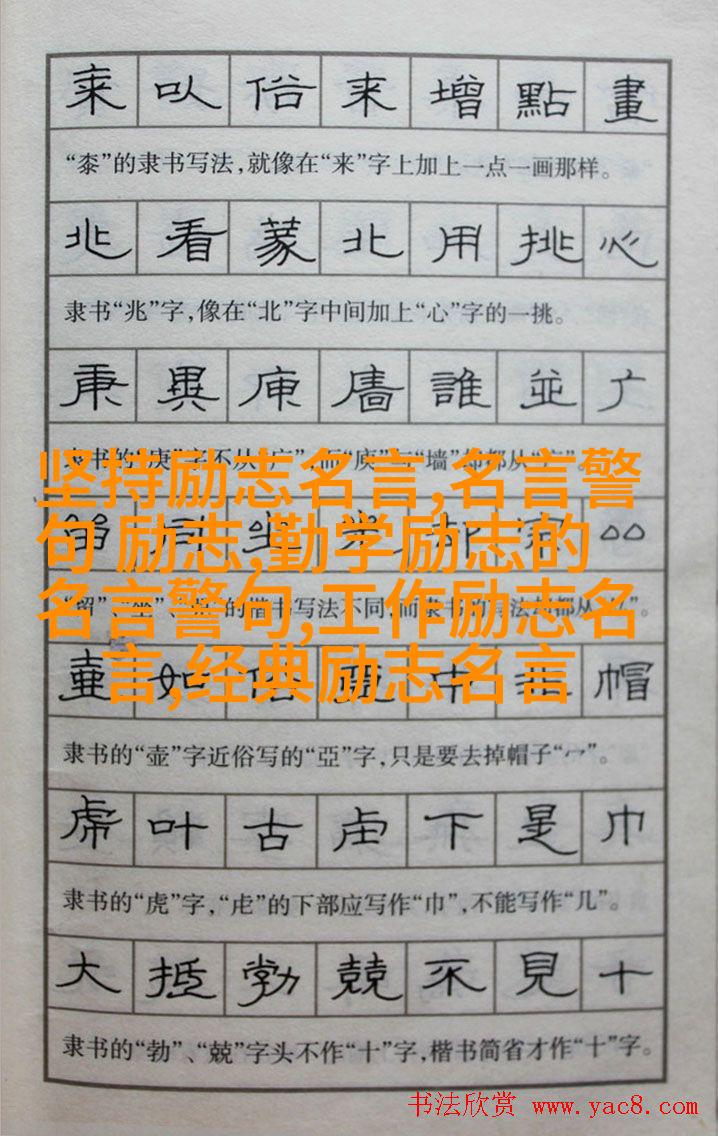 来 以 俗 来 增 點 畫
“桼”的隶书写法，就像在“来”字上加上一点一画那样。
兆 看 篆 北 用 挑 心
隶书“兆”字，像在“北”字中间加上“心”字的一挑。
庚 異 庾 廧 誰 並 广
坚持励志名言,名言警
句 励志,勤学励志的
名言警句,工作励志名
言,经典励志名言
如 中 非 帽
隶书的“壶”字近俗写的“亞”字，只是要去掉帽子“冖”。
虎 叶 古 虍 下 是 巾
隶书的“虎”字，“虍”的下部应写作“巾”，不能写作“几”。
大 抵 勃 兢 不 見 十
隶书的“勃”、“兢”字头不作“十”字，楷书简省才作“十”字。
书法欣赏 www.yac8.com